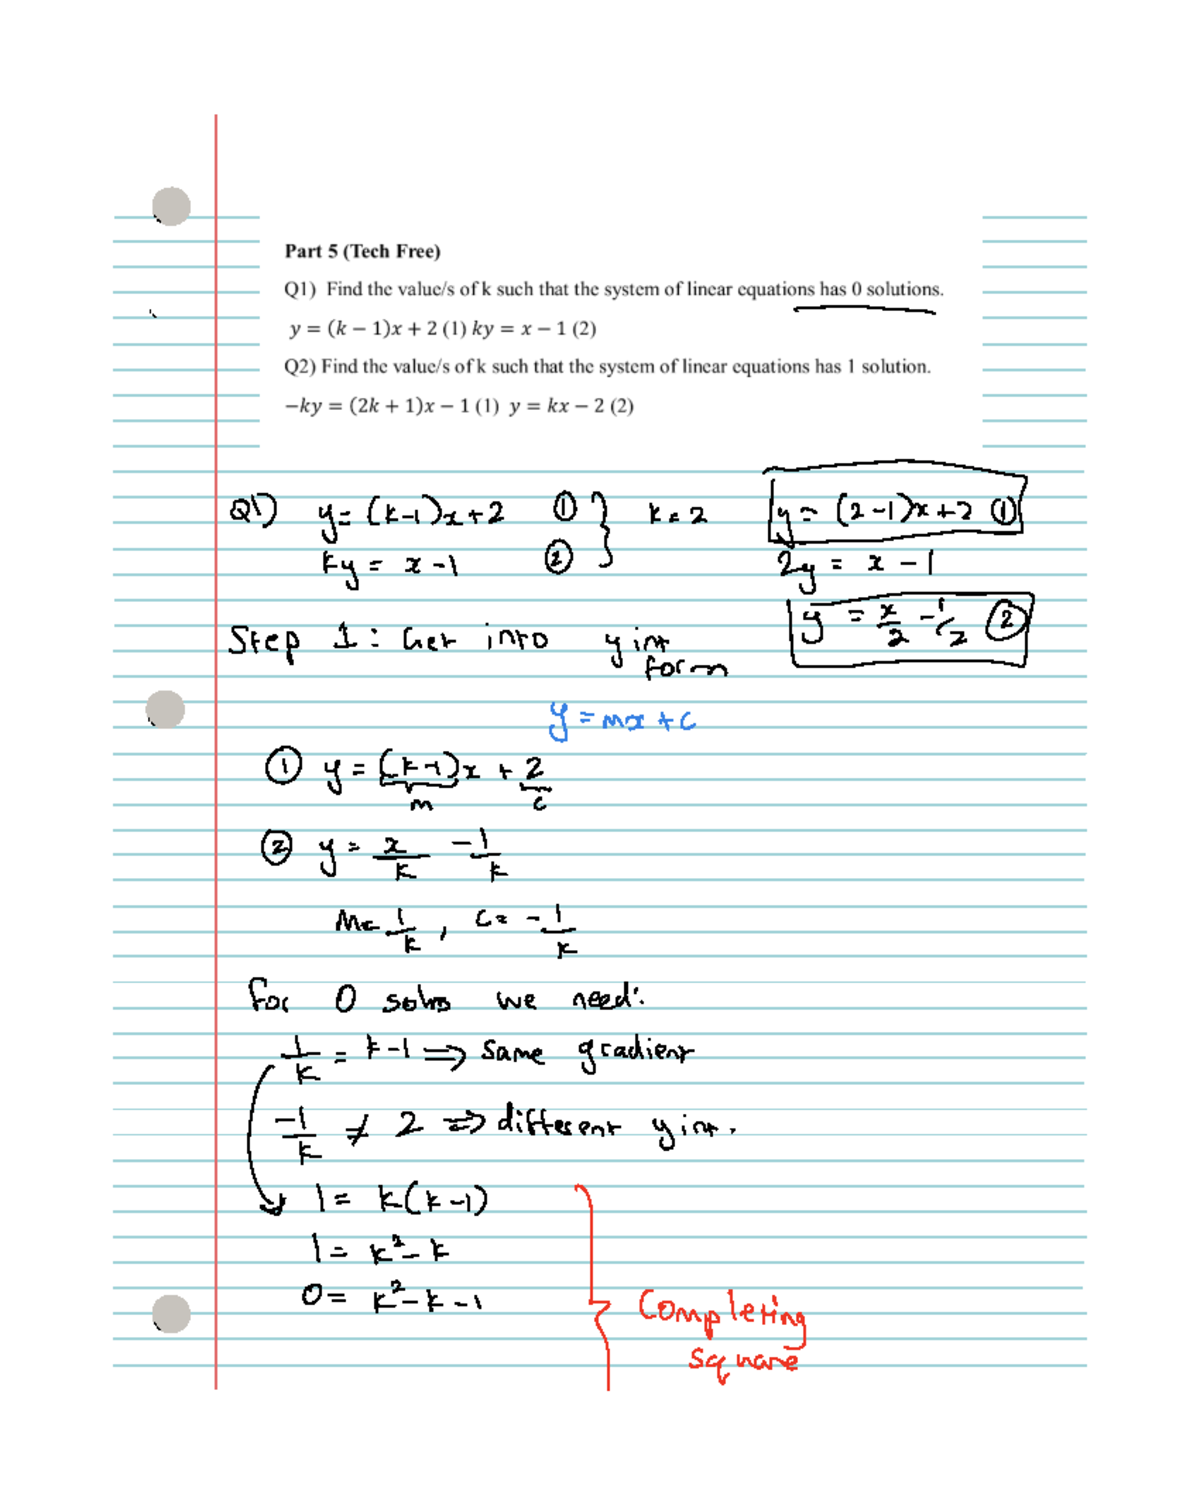 Part 5 (Tech Free)
Q1) Find the value/s of k such that the system of linear equations has 0 solutions.
y = (k − 1)x + 2 (1) ky = x − 1 (2)
Q2) Find the value/s of k such that the system of linear equations has 1 solution.
−ky = (2k + 1)x − 1 (1) y = kx − 2 (2)
Q1) y = (k-1)x+2 ① } k = 2 y = (2-1)x+2 ①
ky = x-1 ② 2y = x - 1
y = x/2 - 1/2 ②
Step 1: Get into y int form
y = mx + c
① y = (k-1)x + 2
m c
② y = x/k - 1/k
M = 1/k, C = -1/k
For 0 solns we need:
1/k = k-1 ⇒ same gradient
-1/k ≠ 2 ⇒ different y int.
1 = k(k-1)
1 = k²-k
0 = k²-k-1
Completing
square